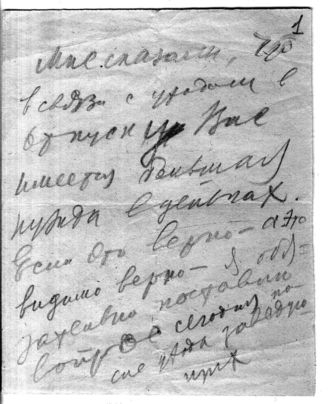 1
Мне сказали, что
в связи с уходом в
отпуск у Вас
имеется большая
нужда в деньгах.
Если это верно – а это
видимо верно – я обя-
зательно поставлю
вопрос сегодня